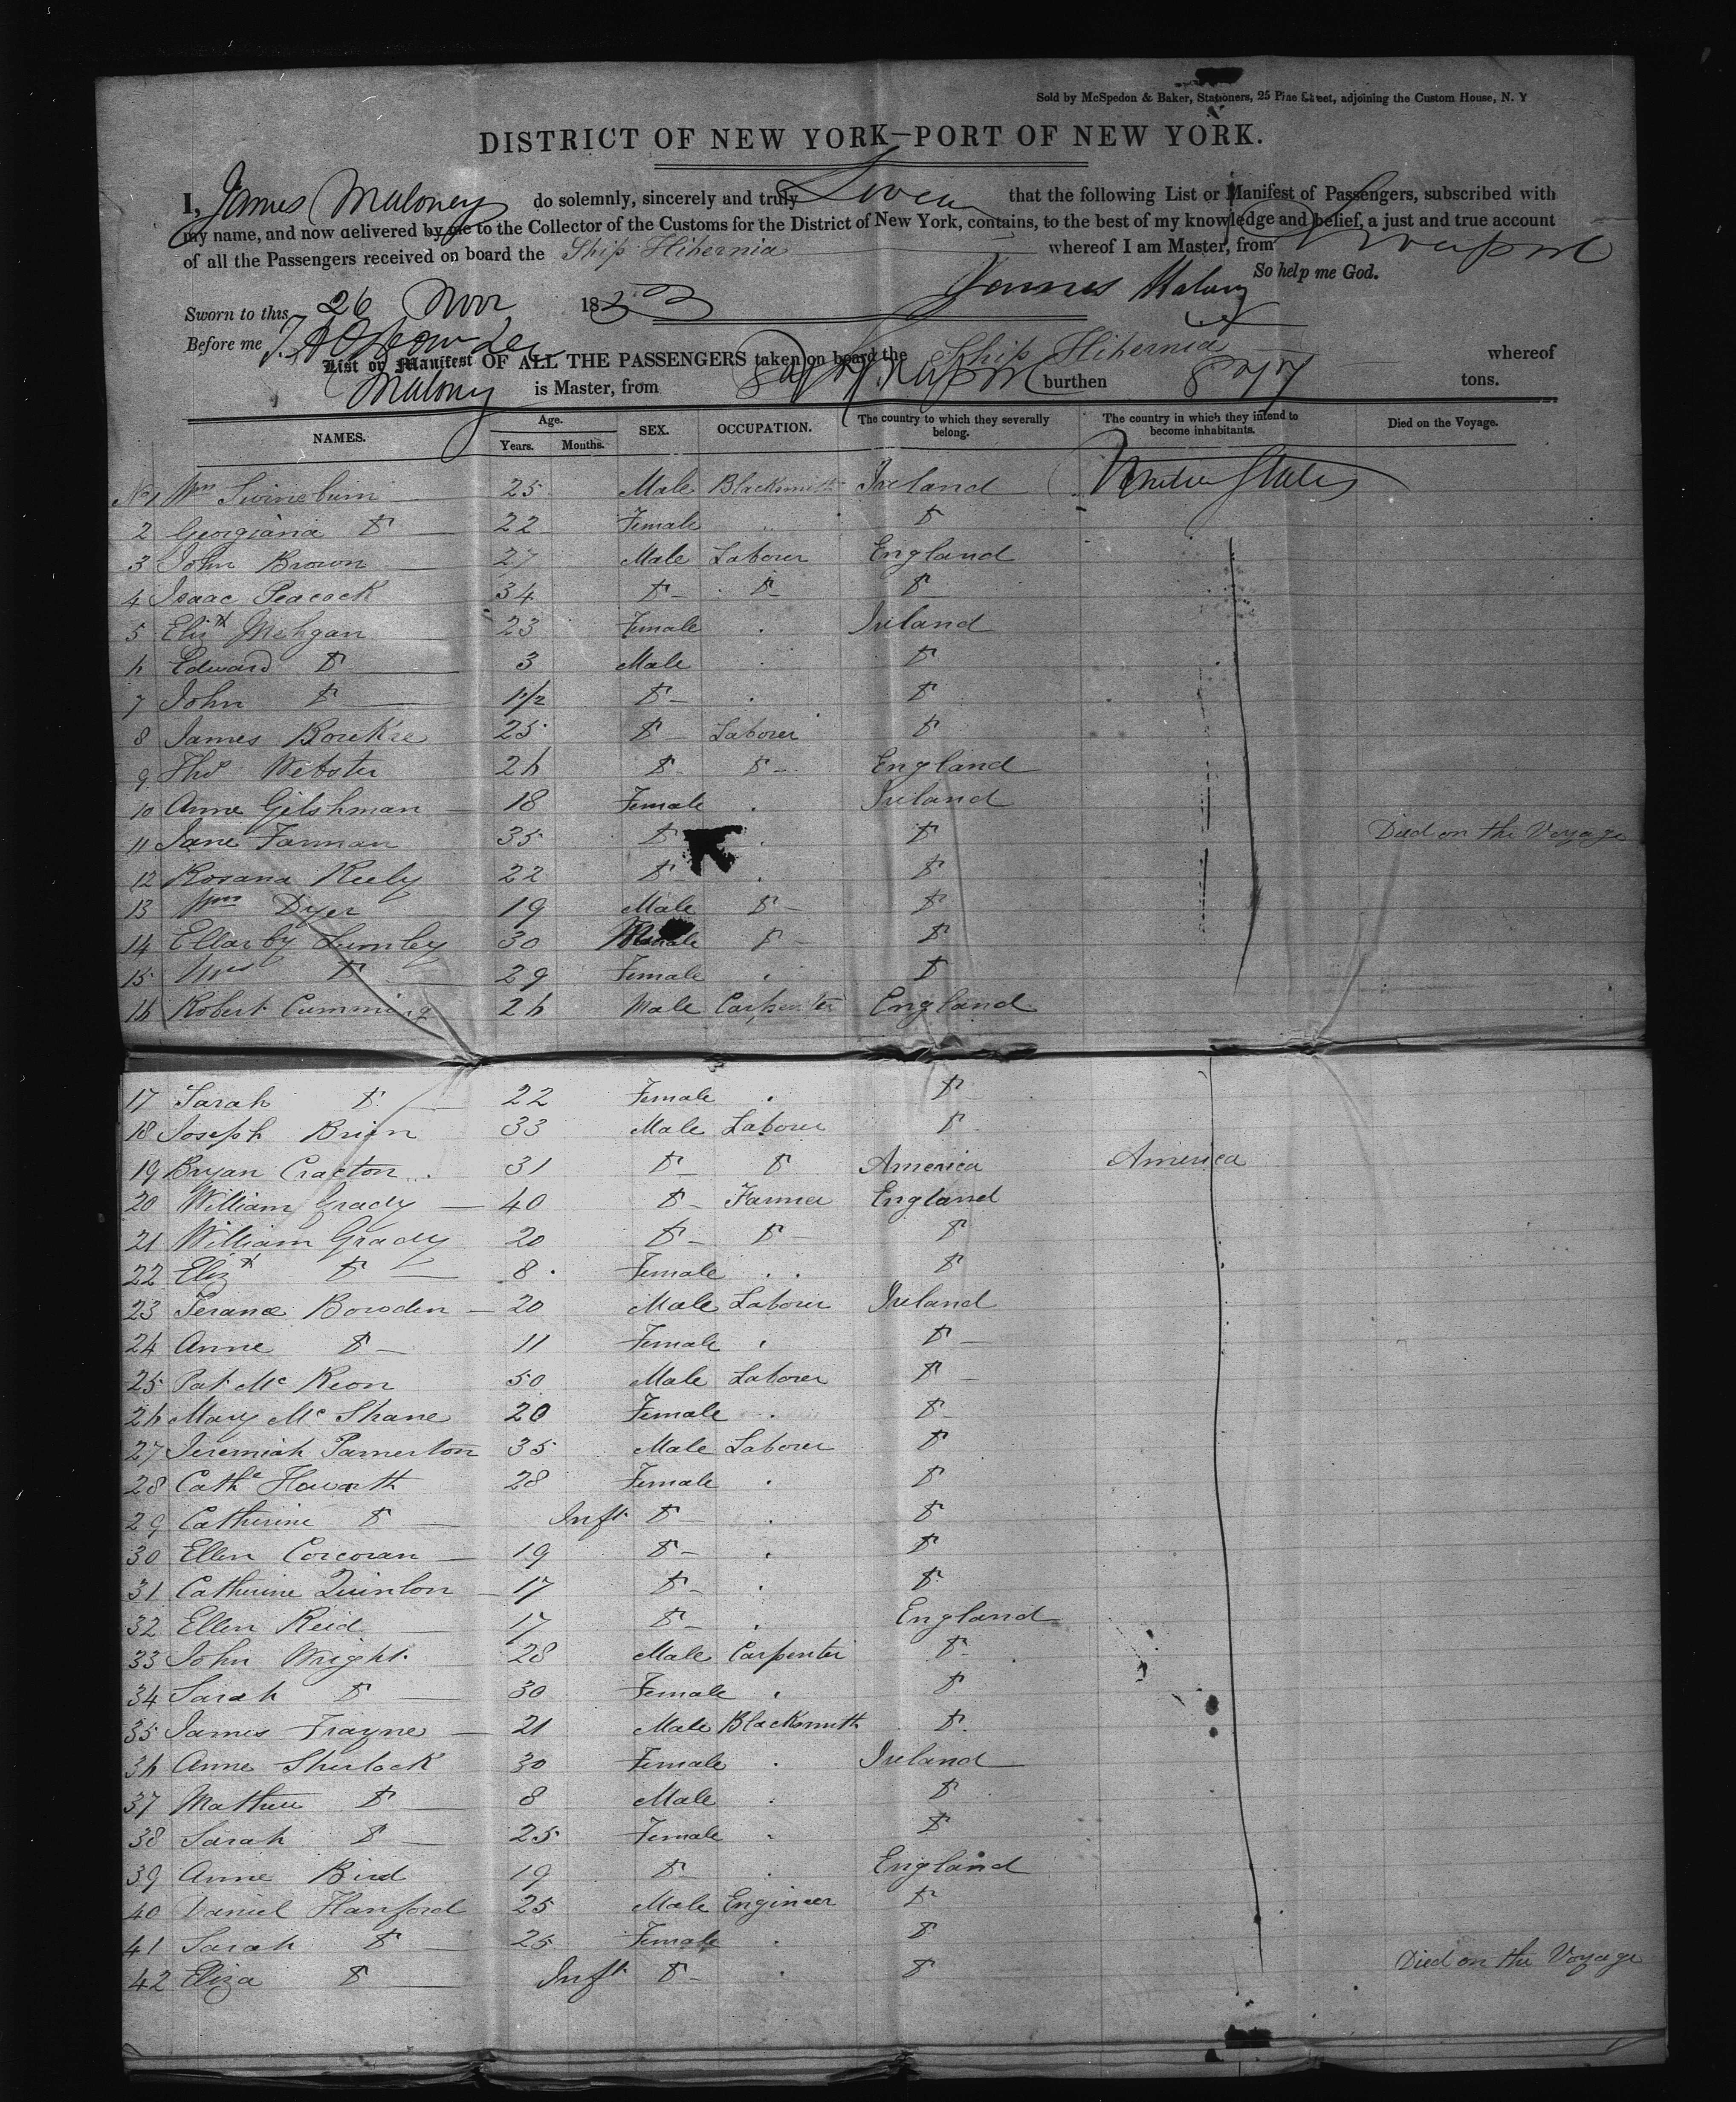 Sold by McSpedon & Baker, Stationers, 25 Pine Street, adjoining the Custom House, N. Y
DISTRICT OF NEW YORK—PORT OF NEW YORK.
I, James Maloney do solemnly, sincerely and truly Swear that the following List or Manifest of Passengers, subscribed with
my name, and now delivered by me to the Collector of the Customs for the District of New York, contains, to the best of my knowledge and belief, a just and true account
of all the Passengers received on board the Ship Hibernia whereof I am Master, from Liverpool
So help me God.
Sworn to this 26 Novr 1853 James Maloney
Before me
List or Manifest OF ALL THE PASSENGERS taken on board the Ship Hibernia whereof
Maloney is Master, from Liverpool burthen 877 tons.
NAMES. Age. Years. Months. SEX. OCCUPATION. The country to which they severally belong. The country in which they intend to become inhabitants. Died on the Voyage.
No 1 Wm Swineburn 25 Male Blacksmith Ireland United States
2 Georgiana Do 22 Female " Do
3 John Brown 27 Male Laborer England
4 Isaac Peacock 34 Do Do Do
5 Elizth Mehgan 23 Female Ireland
6 Edward Do 3 Male Do
7 John Do 1 1/2 Do Do
8 James Bourke 25 Do Laborer Do
9 Thos Webster 26 Do Do England
10 Anne Gilshman 18 Female Ireland
11 Jane Fannan 35 Do Do Died on the Voyage
12 Rosana Keely 22 Do Do
13 Wm Dyer 19 Male Do Do
14 Ellarby Lumley 30 Male Do Do
15 Mrs Do 29 Female Do
16 Robert Cumming 26 Male Carpenter England
17 Sarah Do 22 Female Do
18 Joseph Brien 33 Male Laborer Do
19 Bryan Cracton 31 Do Do America America
20 William Grady 40 Do Farmer England
21 William Grady 20 Do Do Do
22 Elizth Do 8 Female Do
23 Terance Bowden 20 Male Laborer Ireland
24 Anne Do 11 Female Do
25 Pat Mc Keon 50 Male Laborer Do
26 Mary Mc Shane 20 Female Do
27 Jeremiah Pamerton 35 Male Laborer Do
28 Cathe Howarth 28 Female Do
29 Catherine Do Inft Do Do
30 Ellen Corcoran 19 Do Do
31 Catherine Quinlon 17 Do Do
32 Ellen Reid 17 Do England
33 John Wright 28 Male Carpenter Do
34 Sarah Do 30 Female Do
35 James Frayne 21 Male Blacksmith Do
36 Anne Sherlock 30 Female Ireland
37 Mathew Do 8 Male Do
38 Sarah Do 25 Female Do
39 Anne Bird 19 Do England
40 Daniel Hanford 25 Male Engineer Do
41 Sarah Do 25 Female Do
42 Eliza Do Inft Do Do Died on the Voyage